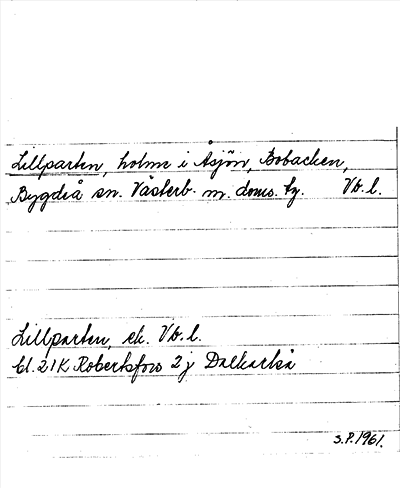 Lillparten, holme i Åsjön, Bobacken,
Bygdeå sn. Västerb. m. doms. tg. Vb. l.
Lillparten, ek. Vb. l.
bl. 21K Robertsfors 2j Dalkarlså
S.P. 1961.